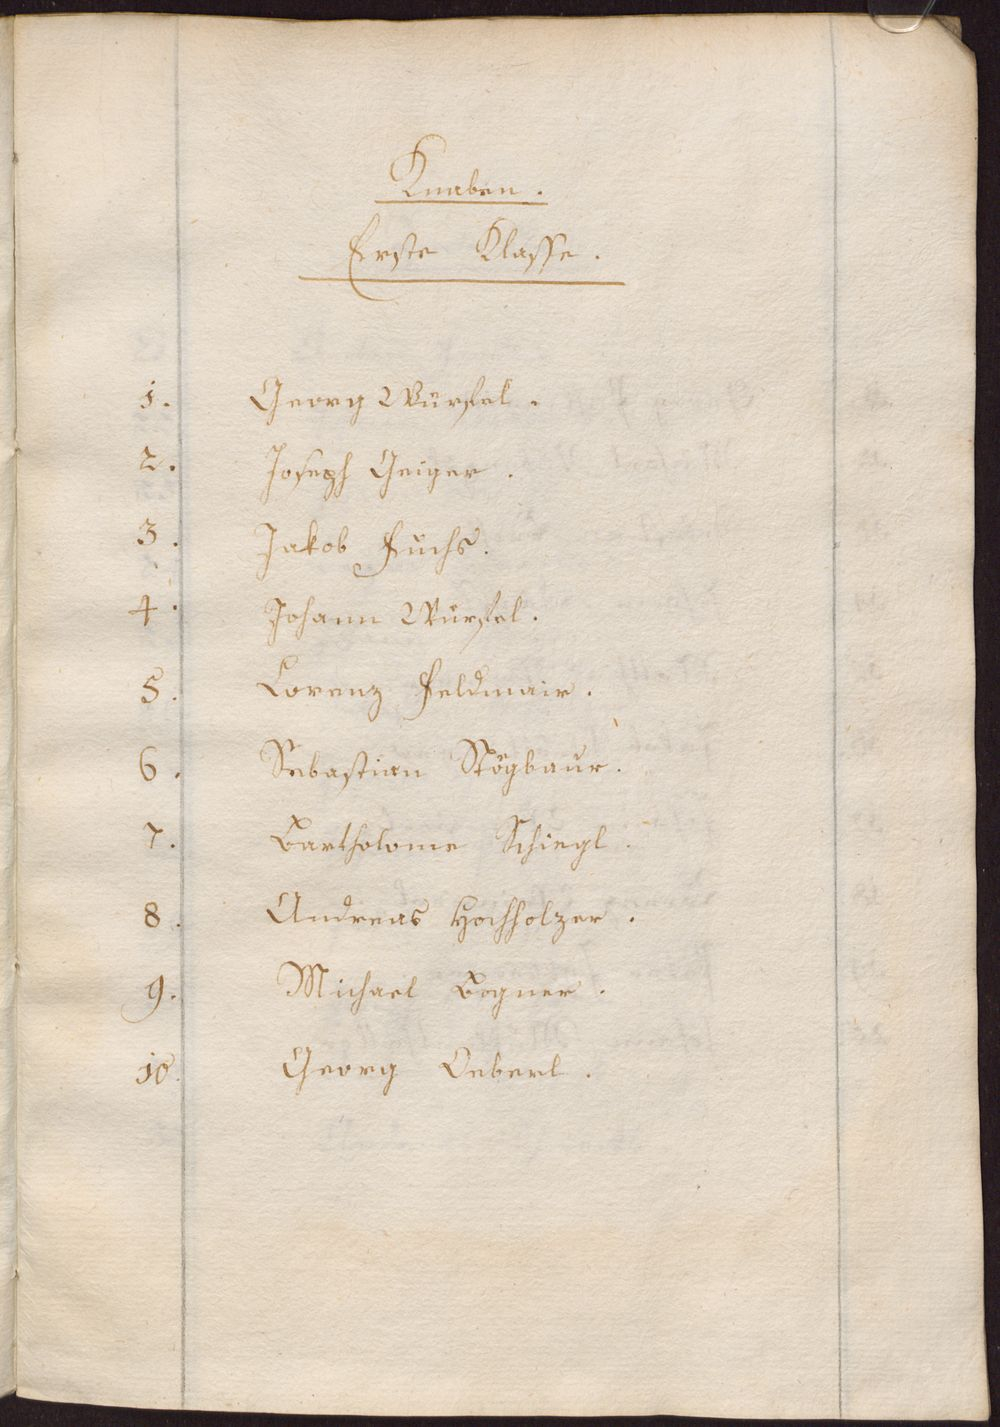 Knaben.
Erste Klasse.
1. Georg Würstel.
2. Joseph Geiger.
3. Jakob Fuchs.
4. Johann Würstel.
5. Lorenz Feldmair.
6. Sebastian Stögbaur.
7. Bartholome Schiegl.
8. Andreas Hochholzer.
9. Michael Bogner.
10. Georg Oeberl.